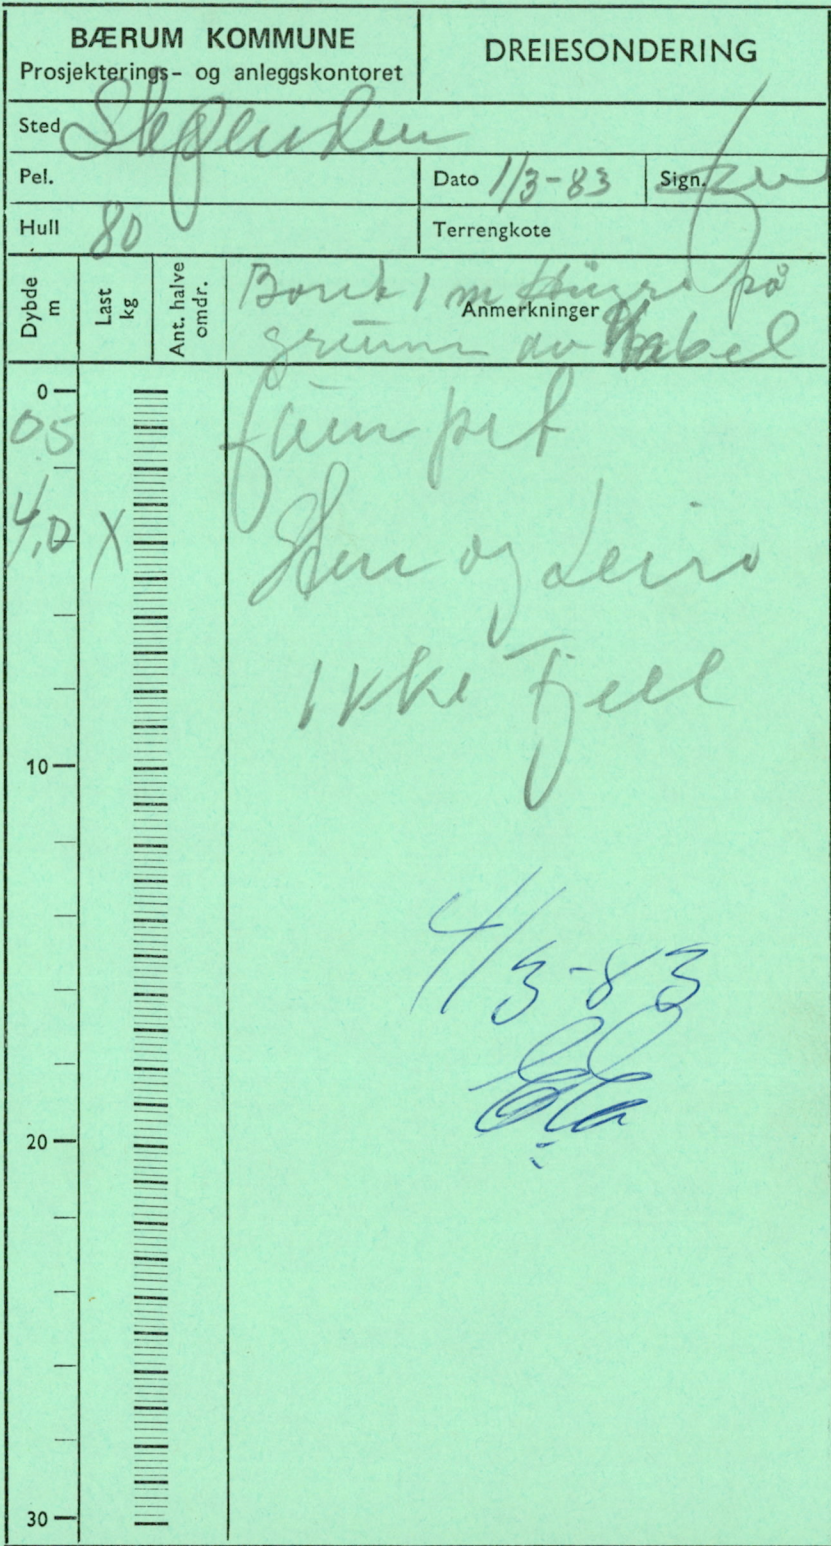 BÆRUM KOMMUNE
Prosjekterings- og anleggskontoret
DREIESONDERING
Sted
Pel.
Dato 1/3-83
Sign.
Hull 80
Terrengkote
Dybde m
Last kg
Ant. halve omdr.
Anmerkninger
Boret 1 m på
grunn av Kabel
0
05
4,0 X
Sten og Leire
Ikke Fjell
10
4/3-83
20
30